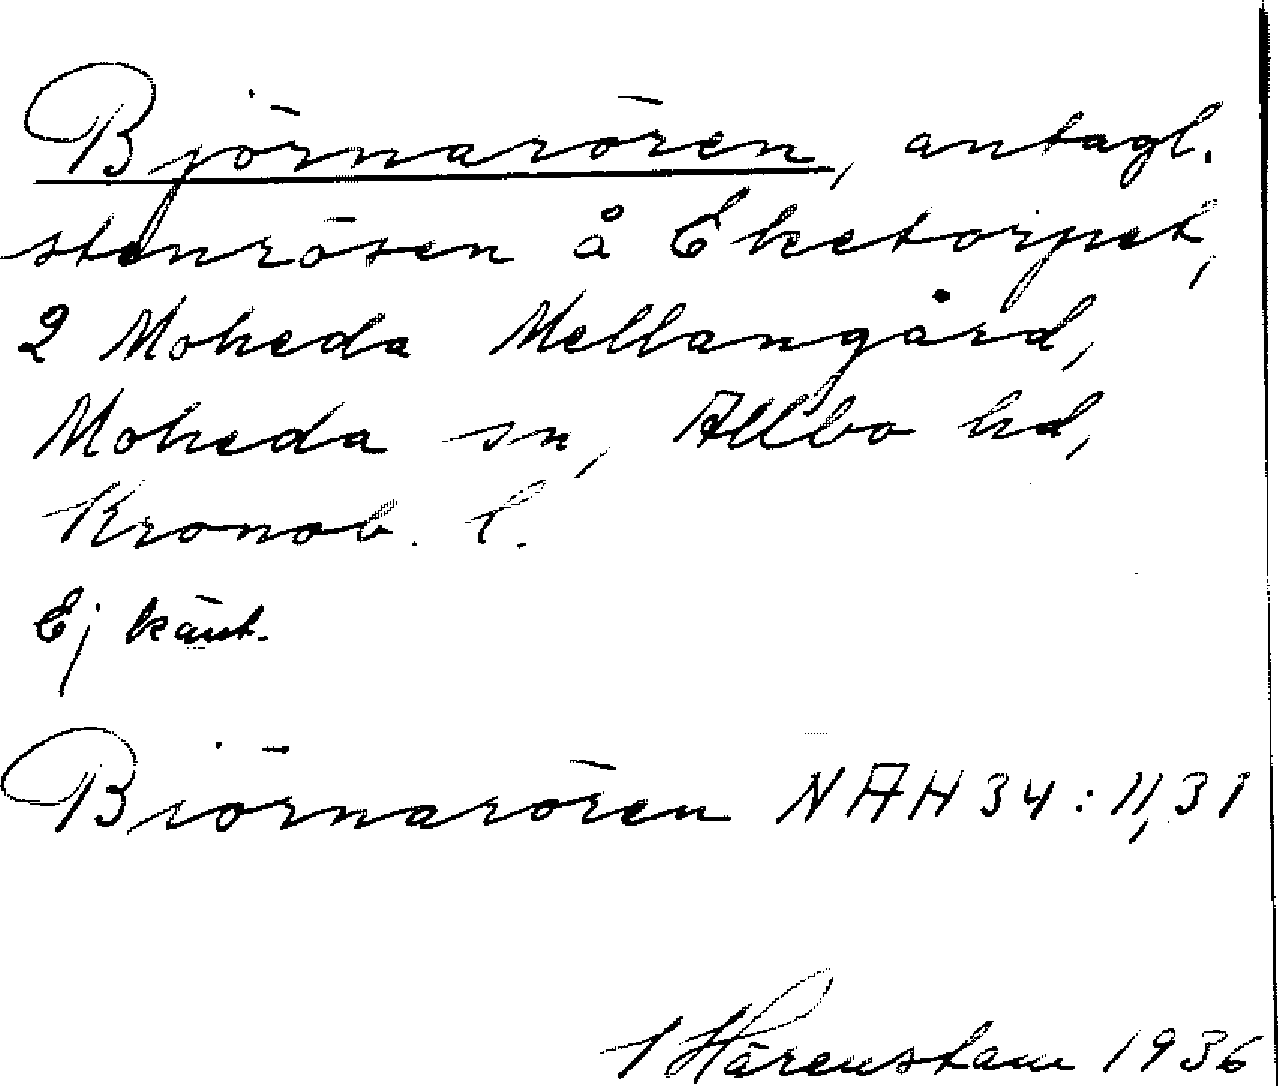 Björnarören, antagl.
stenrösen å Eketorpet,
2 Moheda Mellangård,
Moheda sn, Allbo hd,
Kronob. l.
Ej känt.
Biörnarören NÄH 34:11,31
Härenstam 1936